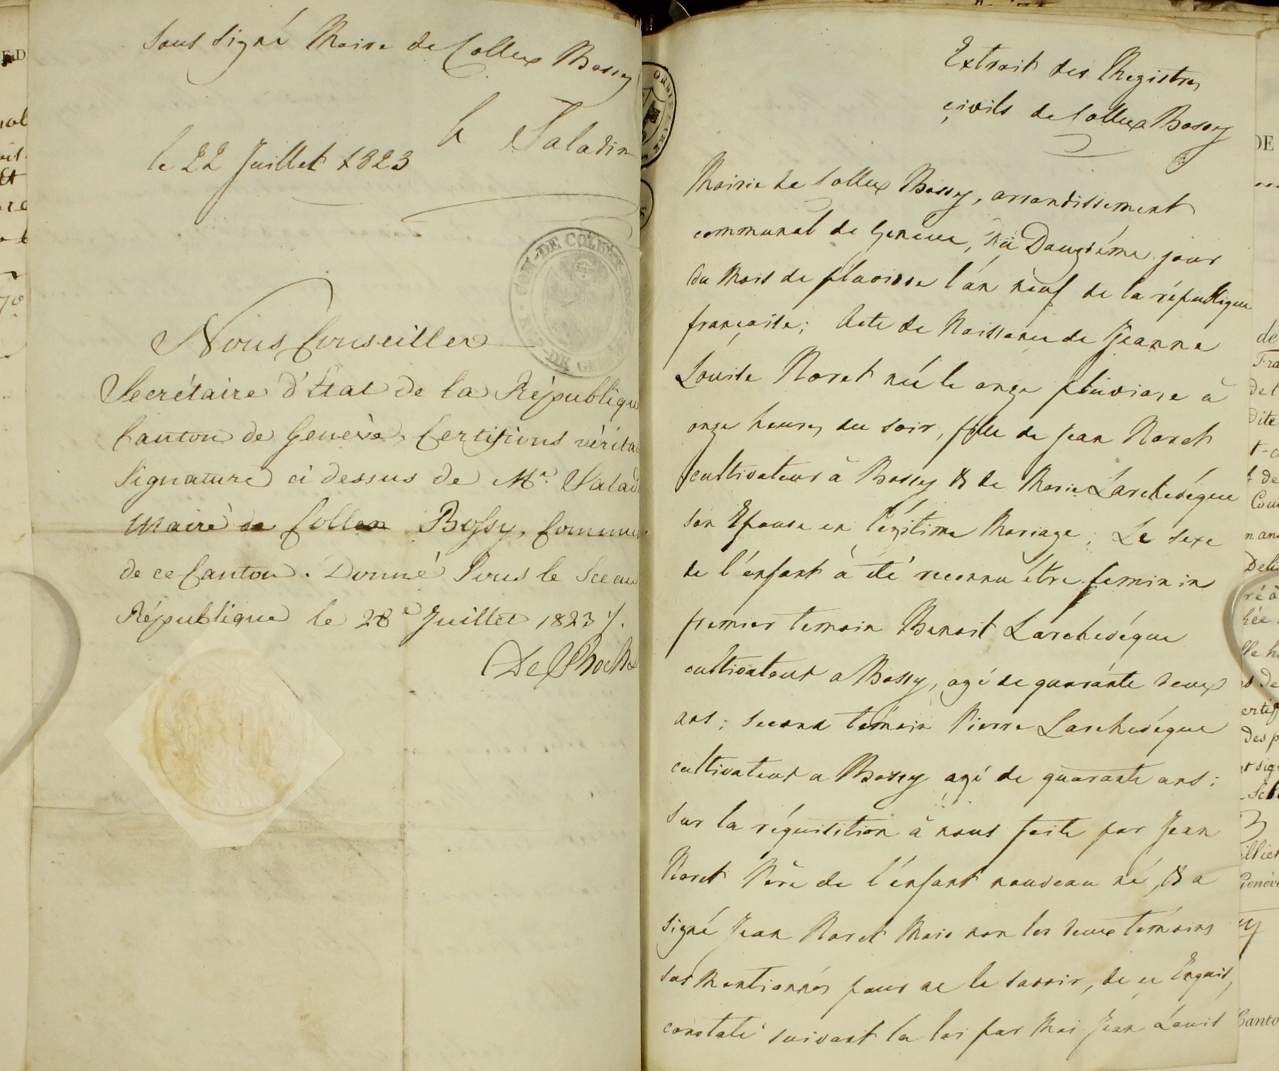 sous signé Maire de Collex Bossy
le 22 Juillet 1823
h Saladin
COM DE COLEX
DE GE
Nous Conseiller
Secrétaire d'État de la République
Canton de Genève, Certifions vérita
Signature ci dessus de Mr. Salad
Maire de Collex Bossy, Commune
de ce Canton. Donné sous le Sceau
République le 28e Juillet 1823 /.
De
Extrait des Registres
civils de Collex Bossy
Mairie de Collex Bossy, arrondissement
communal de Geneve, du Douzième jour
du Mois de pluviose l'an neuf de la république
française; Acte de Naissance de Jeanne
Louise Noret née le onze pluviose à
onze heures du soir, fille de Jean Noret
cultivateur à Bossy & de Marie Larchevéque
son Epouse en légitime Mariage; Le sexe
de l'enfant à été reconnu être feminin
premier temoin Benoit Larchevéque
cultivateur a Bossy, agé de quarante deux
ans; second témoin Pierre Larchevéque
cultivateur a Bossy agé de quarante ans;
Sur la réquisition à nous faite par Jean
Noret Père de l'enfant nouveau né, & a
signé Jean Noret Mais non les deux témoins
sus Mentionnés pour ne le savoir, de ce Enquis,
constaté suivant la loi par Moi Jean Louis